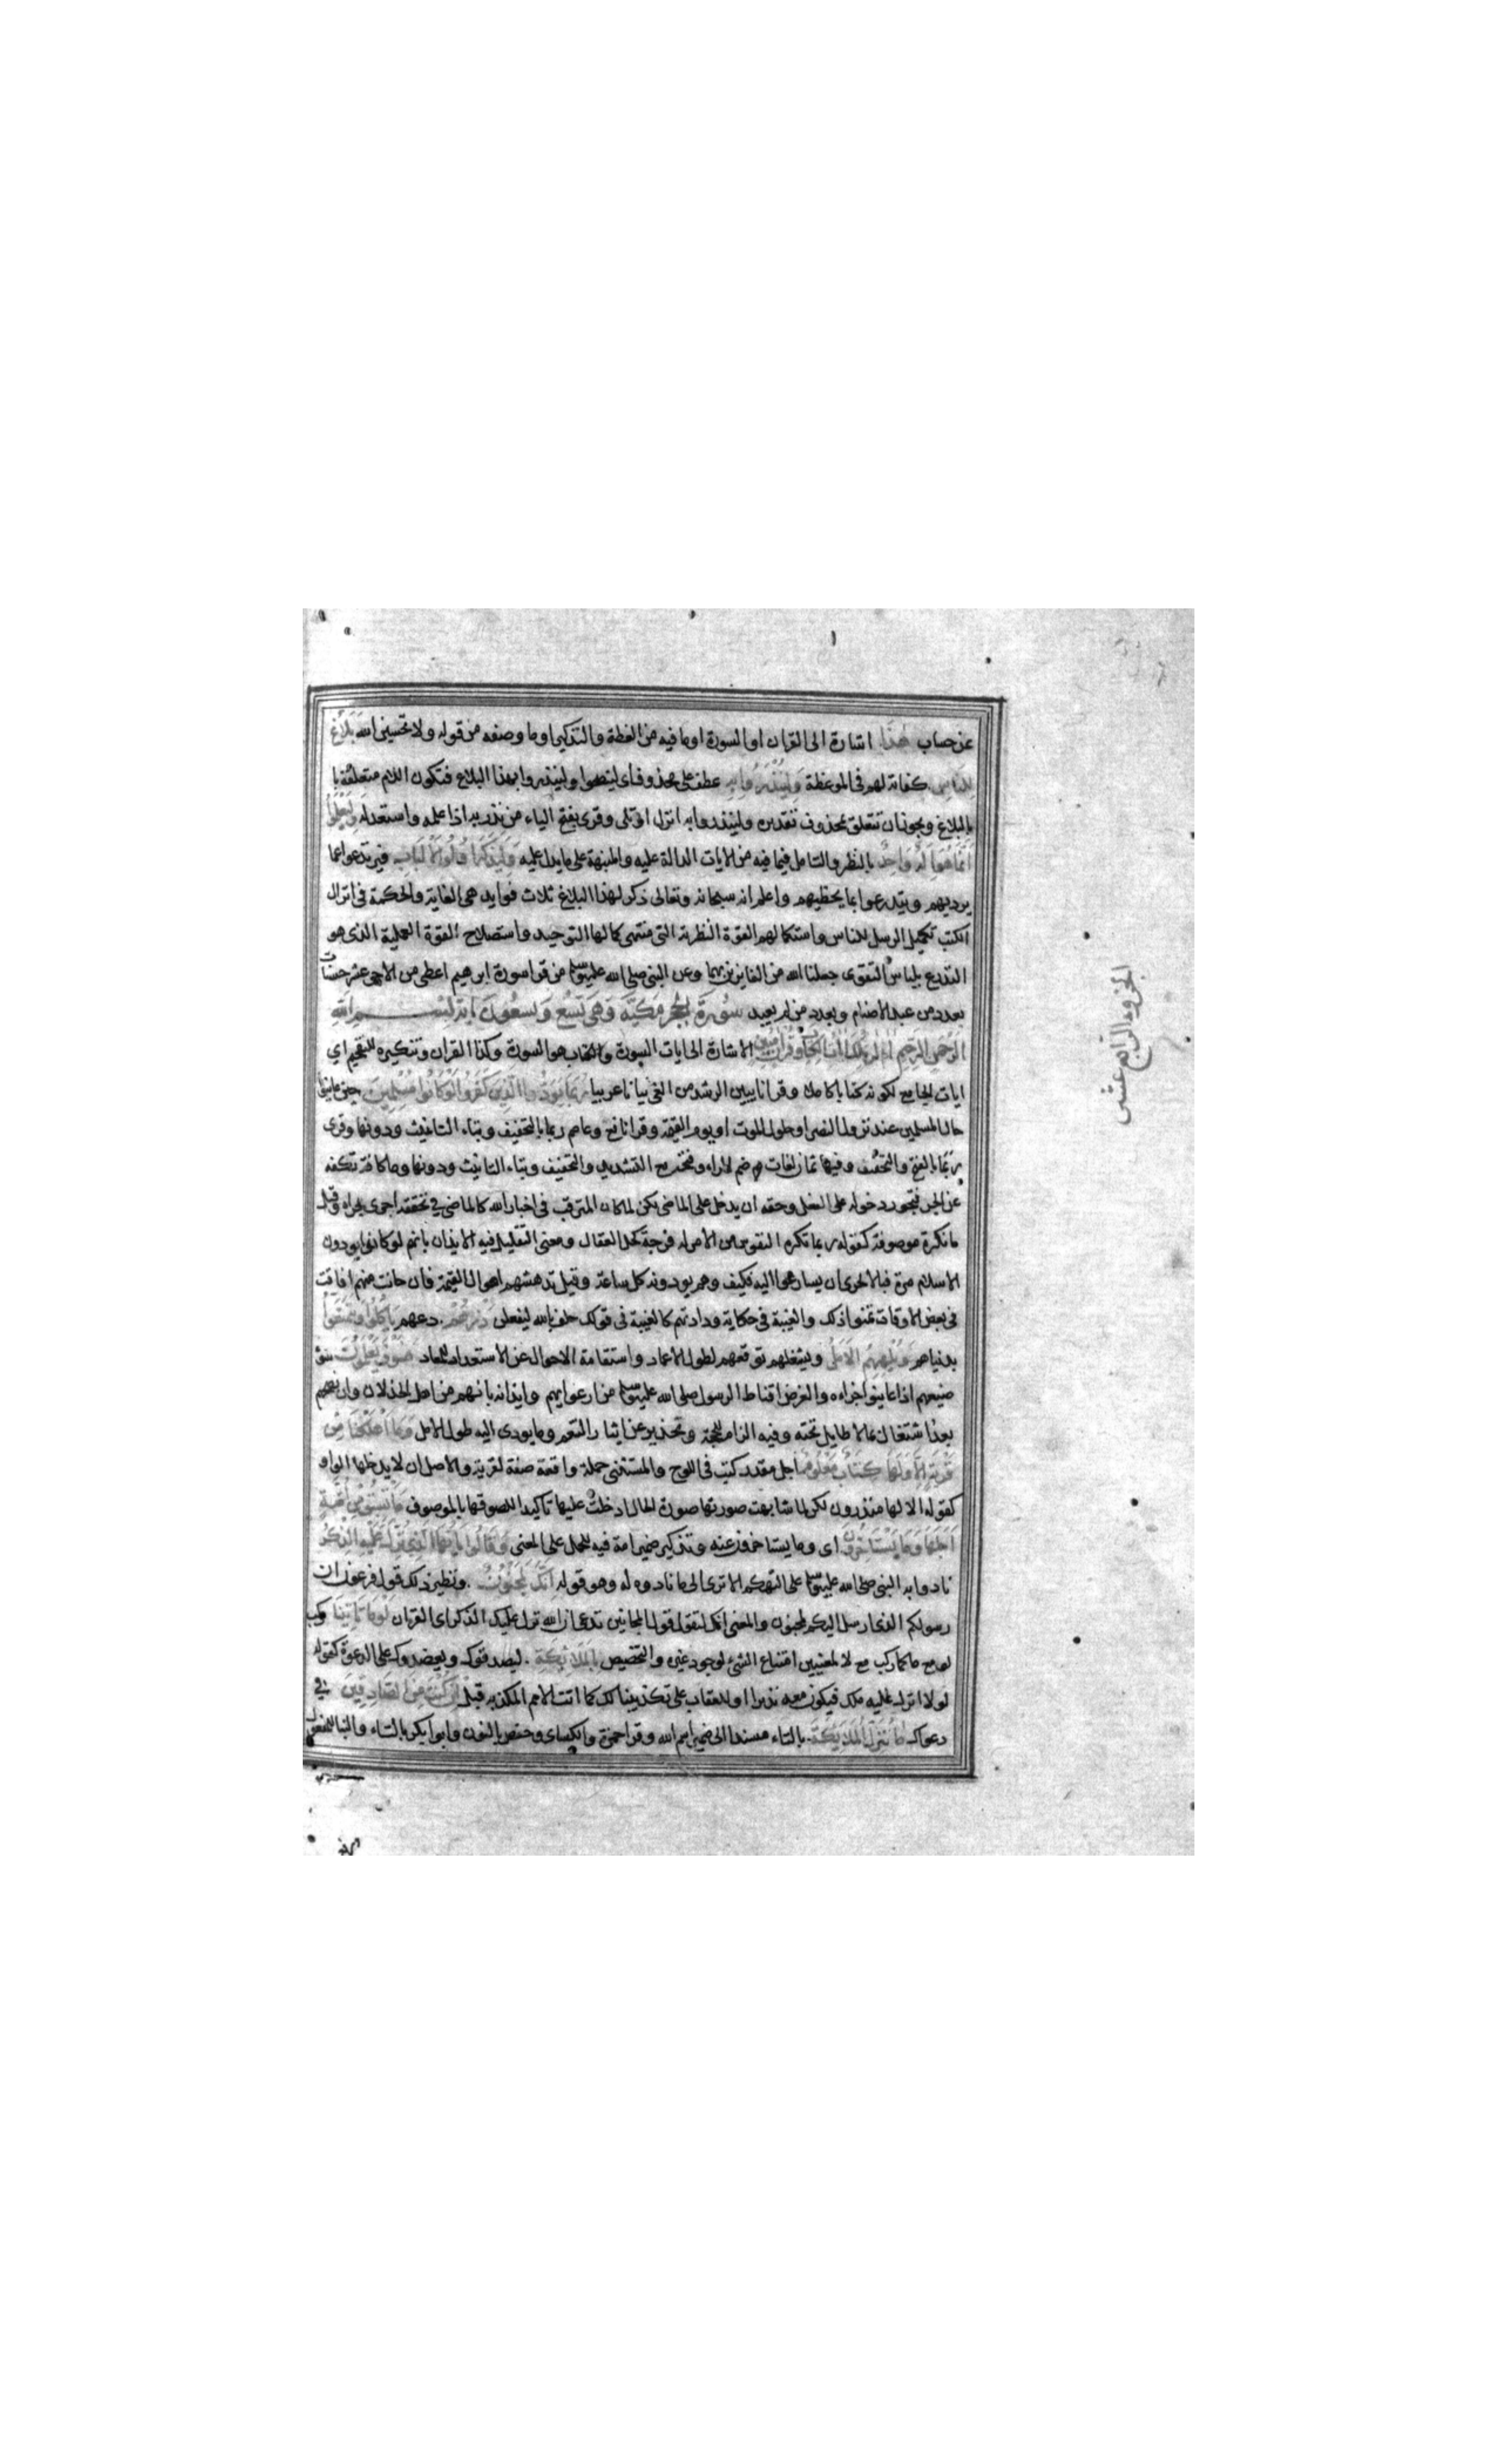 عن حساب هذا اشارة الى القران او السورة او ما فيه من العظة والتذكير او ما وصفه من قوله ولا تحسبن الله بلاغ
للناس كفاية لهم فى الموعظة ولينذروا به عطف على محذوف اى لينصحوا ولينذروا بهذا البلاغ فتكون اللام متعلقة با
بالبلاغ ويجوز ان تتعلق بمحذوف تقديره ولينذروا به انزل او تلى وقرى بفتح الياء من نذر به اذا علمه واستعد له وليعلموا
انما هو اله واحد بالنظر والتامل فيما فيه من الايات الدالة عليه والمنبهة على ما يدل عليه وليذكر اولوا الالباب فيرتدعوا عما
يرديهم ويتدرعوا بما يحظيهم واعلم انه سبحانه وتعالى ذكر لهذا البلاغ ثلاث فوايد هى الغاية والحكمة فى انزال
الكتب تكميل الرسل للناس واستكمالهم القوة النظرية التى منتهى كمالها التوحيد واستصلاح القوة العملية الذى هو
التدرع بلباس التقوى جعلنا الله من الفايزين بهما وعن النبى صلى الله عليه وسلم من قرا سورة ابرهيم اعطى من الاجر عشر حسنات
بعدد من عبد الاصنام وبعدد من لم يعبد سورة الحجر مكية وهى تسع وتسعون اية بسم الله
الرحمن الرحيم الر تلك ايات الكتاب وقران مبين الاشارة الى ايات السورة والكتاب هو السورة وكذا القران وتنكيره للتفخيم اى
ايات الجامع لكونه كتابا كاملا وقرانا يبين الرشد من الغى بيانا عربيا ربما يود الذين كفروا لو كانوا مسلمين حين عاينوا
حال المسلمين عند نزول النصر او حلول الموت او يوم القيمة وقرا نافع وعاصم ربما بالتخفيف وبتاء التانيث ودونها وقرى
ربما بالفتح والتخفيف وفيها ثمان لغات ضم الراء وفتحه مع التشديد والتخفيف وبتاء التانيث ودونها وما كافة تكفه
عن الجر فيجوز دخوله على الفعل وحقه ان يدخل على الماضى لكن لما كان المترقب فى اخبار الله كالماضى فى تحققه اجرى مجراه وقيل
ما نكرة موصوفة كقوله ربما تكره النفوس من الامر له فرجة كحل العقال ومعنى التقليل فيه الايذان بانهم لو كانوا يودون
الاسلام مرة فبالاحرى ان يسارعوا اليه فكيف وهم يودونه كل ساعة وقيل تدهشهم اهوال القيمة فان حانت منهم افاقة
فى بعض الاوقات تمنوا ذلك والغيبة فى حكاية ودادتهم كالغيبة فى قولك حلف بالله ليفعلن ذرهم دعهم ياكلوا ويتمتعوا
بدنياهم ويلههم الامل ويشغلهم توقعهم لطول الاعمار واستقامة الاحوال عن الاستعداد للمعاد فسوف يعلمون سوء
صنيعهم اذا عاينوا جزاءه والغرض اقناط الرسول صلى الله عليه وسلم من ارعوايهم وايذانه بانهم من اهل الخذلان وان نصحهم
بعد اشتغال بما لا طايل تحته وفيه الزام للحجة وتحذير عن ايثار التنعم وما يودى اليه طول الامل وما اهلكنا من
قرية الا ولها كتاب معلوم اجل مقدر كتب فى اللوح والمستثنى جملة واقعة صفة لقرية والاصل ان لا يدخلها الواو
كقوله الا لها منذرون لكن لما شابهت صورتها صورة الحال ادخلت عليها تاكيدا للصوقها بالموصوف ما تسبق من امة
اجلها وما يستاخرون اى وما يستاخرون عنه وتذكير ضمير امة فيه للحمل على المعنى وقالوا يايها الذى نزل عليه الذكر
نادوا به النبى صلى الله عليه وسلم على التهكم الا ترى الى ما نادوه له وهو قوله انك لمجنون ونظير ذلك قول فرعون ان
رسولكم الذى ارسل اليكم لمجنون والمعنى انك لتقول قول المجانين تدعى ان الله نزل عليك الذكر اى القران لو ما تاتينا ركب
لو مع ما كما ركب مع لا لمعنيين امتناع الشئ لوجود غيره والتحضيض بالملائكة ليصدقوك ويعضدوك على الدعوة كقوله
لولا انزل عليه ملك فيكون معه نذيرا او للعقاب على تكذيبنا لك كما اتت الامم المكذبة قبل ان كنت من الصادقين فى
دعواك ما تنزل الملائكة بالتاء مسندا الى ضمير اسم الله وقرا حمزة والكساى وحفص بالنون وابو بكر بالتاء والبنا للمفعول
الجزو الرابع عشر